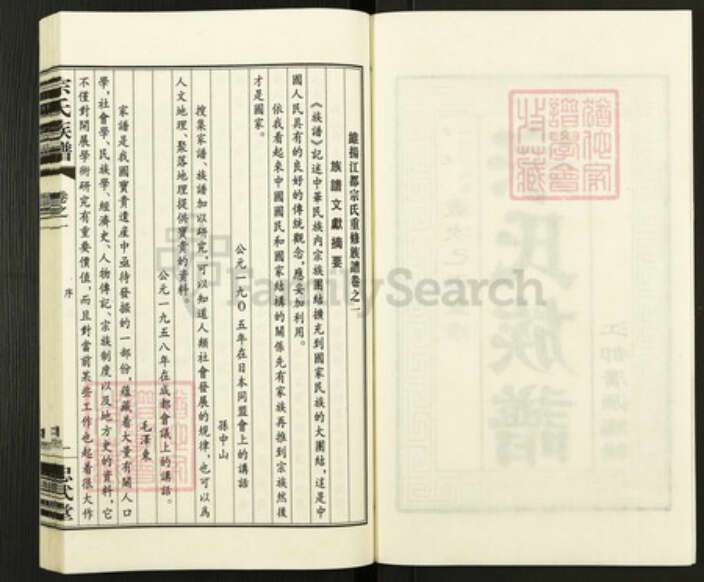 維揚江都宗氏重修族譜卷之一
族譜文獻摘要
《族譜》記述中華民族內宗族團結擴充到國家民族的大團結,這是中
國人民具有的良好的傳統觀念,應妥加利用。
依我看起來中國國民和國家結構的關係先有家族再推到宗族然後
才是國家。
公元一九〇五年在日本同盟會上的講話
孫中山
搜集家譜、族譜加以研究,可以知道人類社會發展的規律,也可以為
人文地理、聚落地理提供寶貴的資料。
公元一九五八年在成都會議上的講話。
毛澤東
家譜是我國寶貴遺產中亟待發掘的一部份,蘊藏着大量有關人口
學,社會學、民族學、經濟史、人物傳記、宗族制度以及地方史的資料,它
不僅對開展學術研究有重要價值,而且對當前某些工作也起着很大作
宗氏族譜
卷之一
序
一
忠武堂
氏族譜
FamilySearch